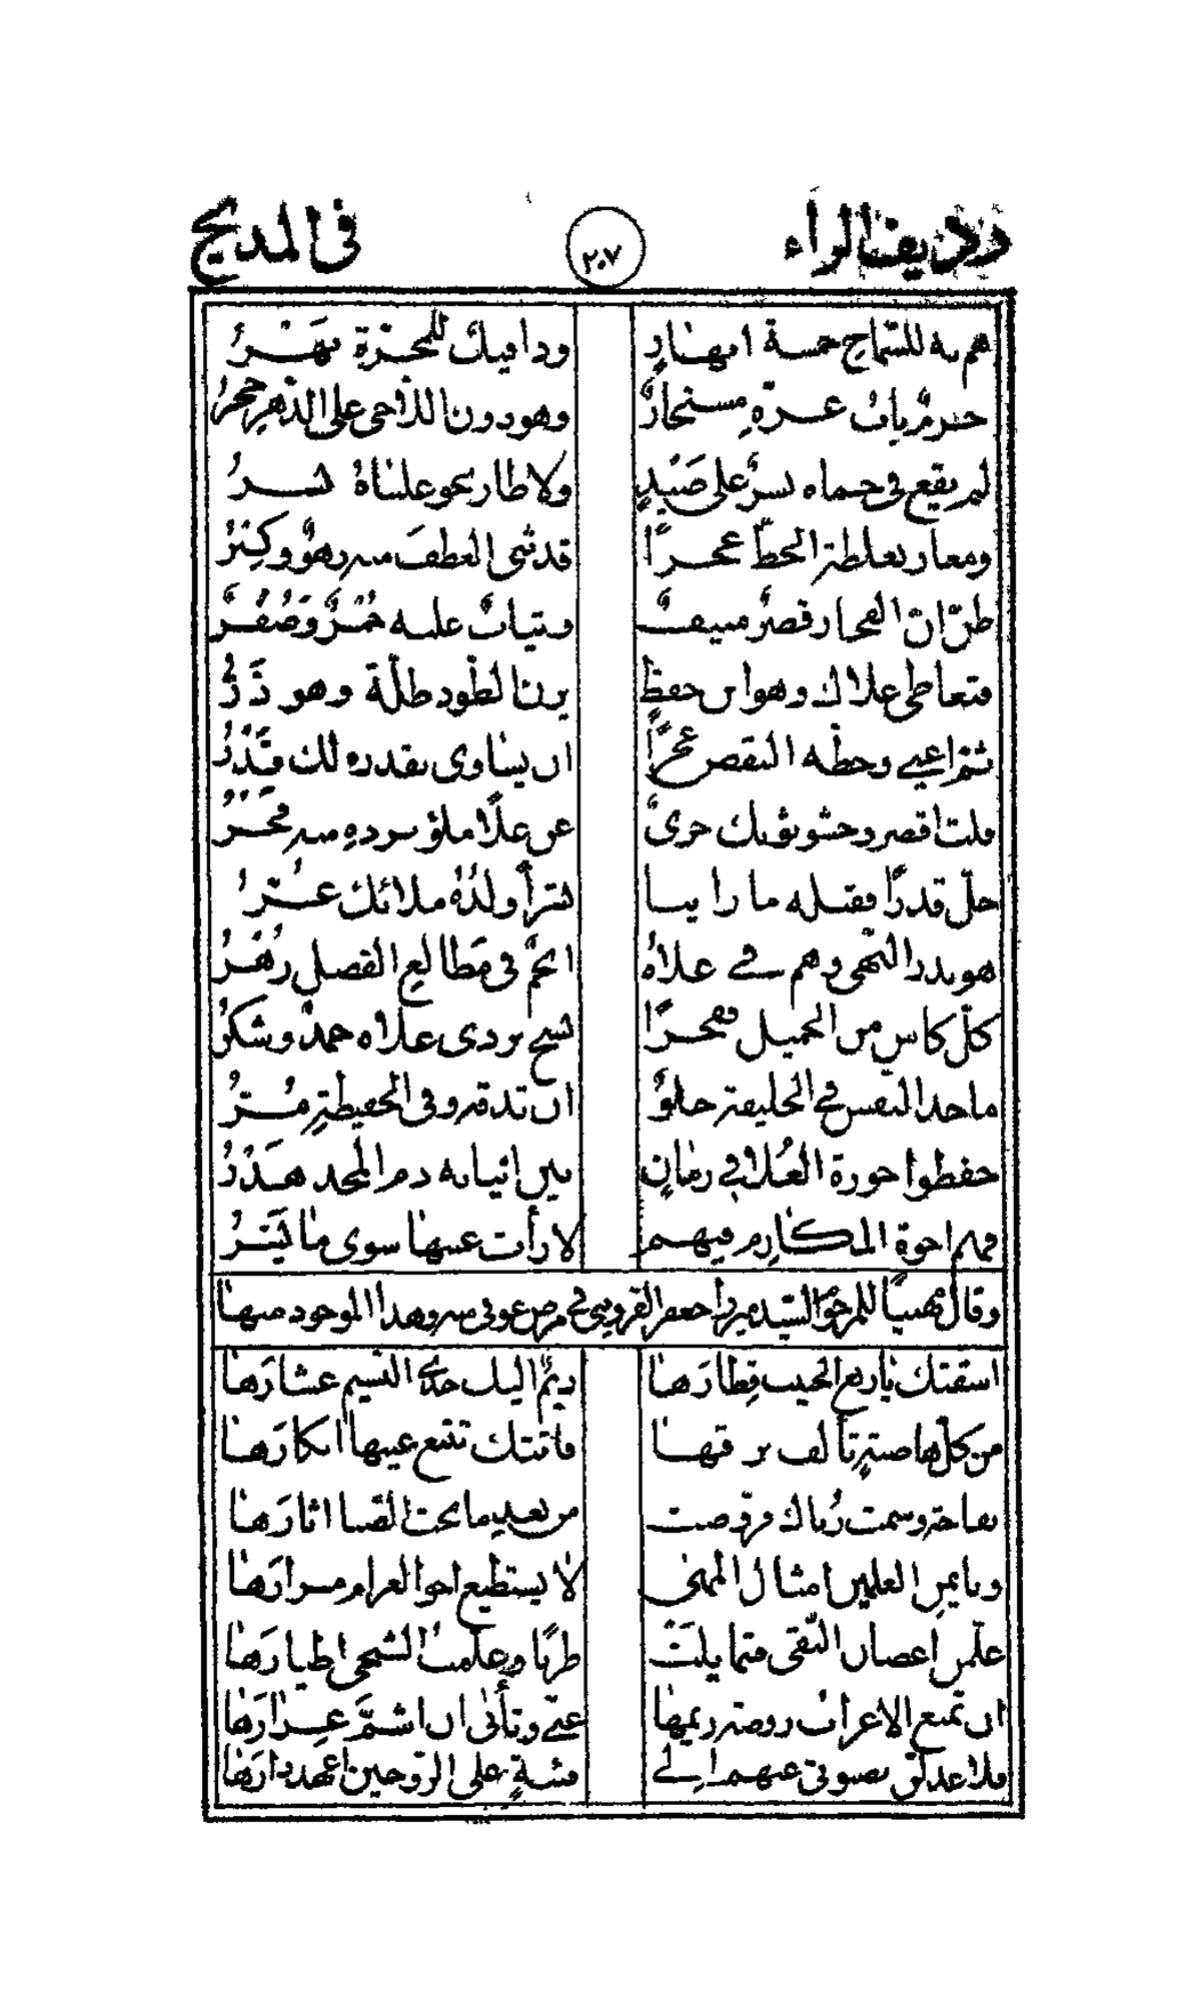 رديف الراء ٢٠٧ في المديح
هم به للسماح خمسة انهار وداميك للمجرة نهر
حرم بات عزه مستجار وهو دون اللاجي على الدهر حجر
لم يقع في حماه نسر على صيد ولا طار نحو علياه نسر
ومعار بغلطة الحظ عجرا قد ثنى العطف منه زهو وكبر
ظن ان الفخار قصر منيف وثياب عليه حمر وصفر
فتعاطى علاك وهو اس حفظ يرن الطود طلة وهو ذر
ثم اعيى وحطه النقص عجزا ان يساوي بقدره لك قدر
قلت اقصر وحشو ثوبك خزي عن علا ملؤ برده منه فخر
جل قدرا فقبله ما راينا بشرا ولده ملائك غر
هو بدر النهى وهم في علاه انجم في مطالع الفضل زهر
كل كاس من الجميل فخرا نسج بردي علاه حمد وشكر
ماجد النفس في الخليقة حلو ان تذقه وفي الحفيظة مر
حفظوا حوزة العلا في زمان بين انيابه دم المجد هدر
فهم اخوة المكارم فيهم لا رأت عينها سوى ما يسر
وقال مهنيا للمرحوم السيد ميرزا جعفر القزويني في مرض عوفي منه وهذا الموجود منها
استقتك يا ربع الحبيب قطارها ديم اليك حدى النسيم عشارها
من كل هاضبة تألف برقها فاتتك تتبع عينها ابكارها
نفاحة وسمت رباك فروضت من بعد ما محت الصبا اثارها
وبايمن العلمين امثال المهى لا يستطيع اخو الغرام مزارها
علمن اغصان النقى فتمايلت طربا وعلمت الشجى اطيارها
ان تمنع الاعراب روضة ريمها عني وتأبى ان اشم عرارها
فلاعذلن بصوتي عنهم الى فئة على الزوجين اعهد دارها